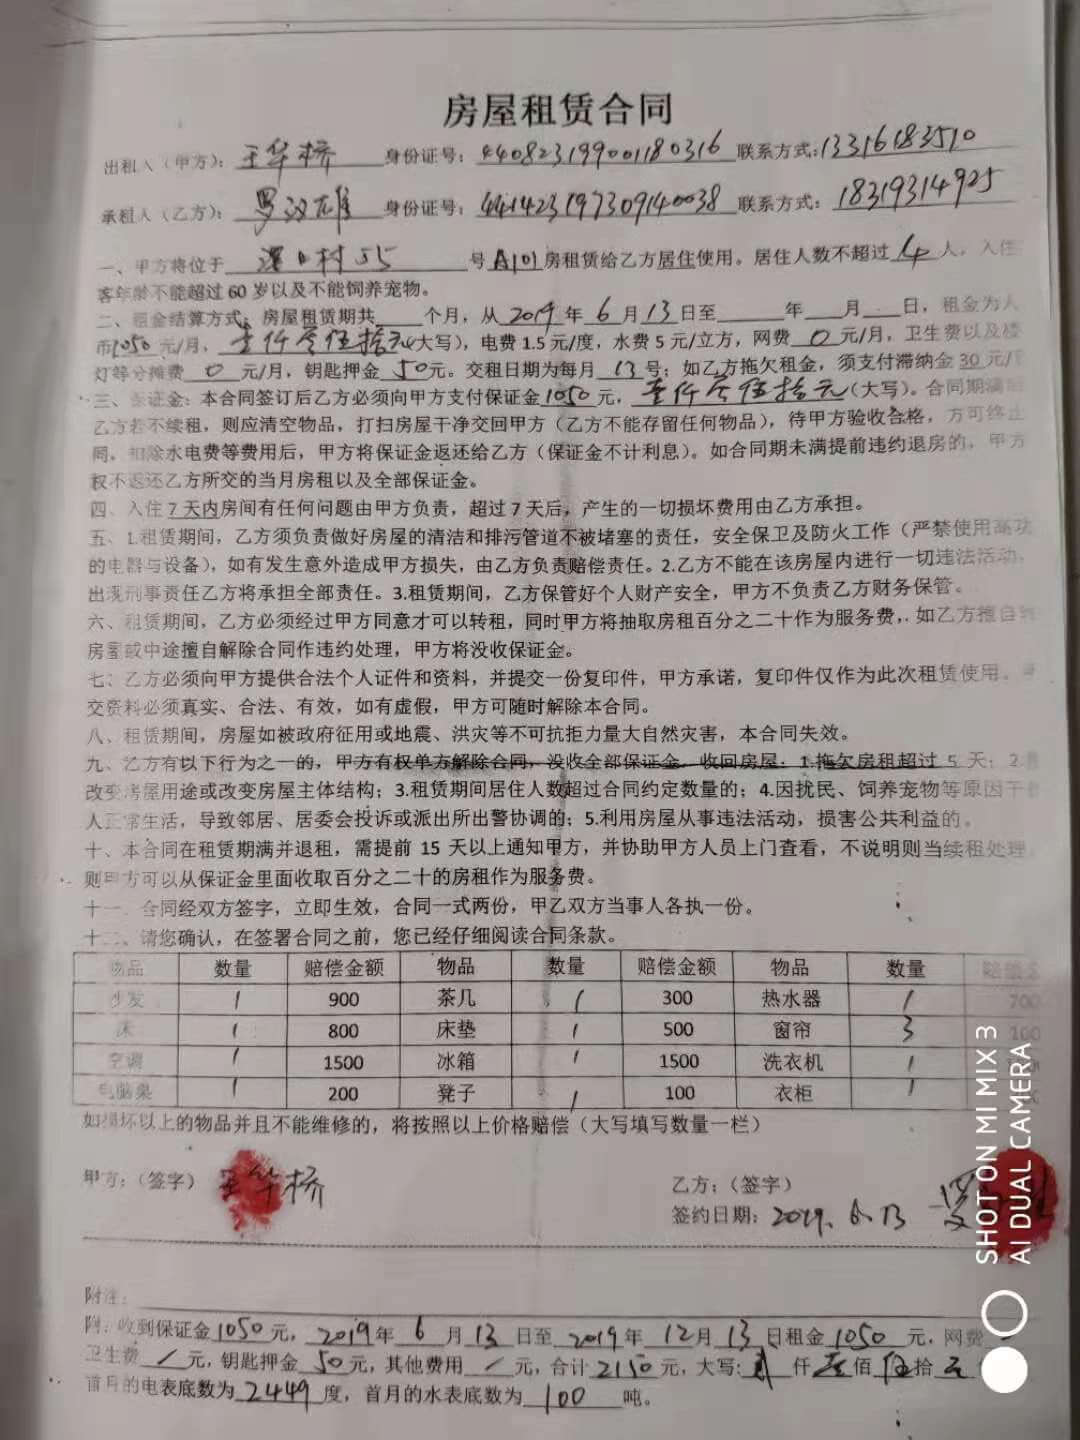 房屋租赁合同
出租人（甲方）：王华桥 身份证号：440823199001180316 联系方式：13316183510
承租人（乙方）：罗汉雄 身份证号：441423197309140038 联系方式：18319314925
一、甲方将位于 村55 号A101房租赁给乙方居住使用。居住人数不超过4人，入住
客年龄不能超过60岁以及不能饲养宠物。
二、租金结算方式：房屋租赁期共 个月，从2019年6月13日至 年 月 日，租金为人
币1050元/月，壹仟零伍拾元（大写），电费1.5元/度，水费5元/立方，网费0元/月，卫生费以及楼
灯等分摊费0元/月，钥匙押金50元。交租日期为每月13号；如乙方拖欠租金，须支付滞纳金30元/
三、保证金：本合同签订后乙方必须向甲方支付保证金1050元，壹仟零伍拾元（大写）。合同期满
乙方若不续租，则应清空物品，打扫房屋干净交回甲方（乙方不能存留任何物品），待甲方验收合格，方可终止
同。扣除水电费等费用后，甲方将保证金返还给乙方（保证金不计利息）。如合同期未满提前违约退房的，甲方
权不返还乙方所交的当月房租以及全部保证金。
四、入住7天内房间有任何问题由甲方负责，超过7天后，产生的一切损坏费用由乙方承担。
五、1.租赁期间，乙方须负责做好房屋的清洁和排污管道不被堵塞的责任，安全保卫及防火工作（严禁使用高功
的电器与设备），如有发生意外造成甲方损失，由乙方负责赔偿责任。2.乙方不能在该房屋内进行一切违法活动，
出现刑事责任乙方将承担全部责任。3.租赁期间，乙方保管好个人财产安全，甲方不负责乙方财务保管。
六、租赁期间，乙方必须经过甲方同意才可以转租，同时甲方将抽取房租百分之二十作为服务费，如乙方擅自转
房屋或中途擅自解除合同作违约处理，甲方将没收保证金。
七、乙方必须向甲方提供合法个人证件和资料，并提交一份复印件，甲方承诺，复印件仅作为此次租赁使用。
交资料必须真实、合法、有效，如有虚假，甲方可随时解除本合同。
八、租赁期间，房屋如被政府征用或地震、洪灾等不可抗拒力量大自然灾害，本合同失效。
九、乙方有以下行为之一的，甲方有权单方解除合同，没收全部保证金，收回房屋：1.拖欠房租超过5天；2.
改变房屋用途或改变房屋主体结构；3.租赁期间居住人数超过合同约定数量的；4.因扰民、饲养宠物等原因干
人正常生活，导致邻居、居委会投诉或派出所出警协调的；5.利用房屋从事违法活动，损害公共利益的。
十、本合同在租赁期满并退租，需提前15天以上通知甲方，并协助甲方人员上门查看，不说明则当续租处理，
则甲方可以从保证金里面收取百分之二十的房租作为服务费。
十一、合同经双方签字，立即生效，合同一式两份，甲乙双方当事人各执一份。
十二、请您确认，在签署合同之前，您已经仔细阅读合同条款。
物品 数量 赔偿金额 物品 数量 赔偿金额 物品 数量 赔偿金
沙发 1 900 茶几 1 300 热水器 1 700
床 1 800 床垫 1 500 窗帘 3 100
空调 1 1500 冰箱 1 1500 洗衣机 1
电脑桌 1 200 凳子 1 100 衣柜 1
如损坏以上的物品并且不能维修的，将按照以上价格赔偿（大写填写数量一栏）
甲方：（签字）王华桥
乙方：（签字）
签约日期：2019.6.13
附注：
附：收到保证金1050元，2019年6月13日至2019年12月13日租金1050元，网费
卫生费/元，钥匙押金50元，其他费用/元，合计2150元，大写：贰仟壹佰伍拾元
首月的电表底数为2449度，首月的水表底数为100吨。
SHOT ON MI MIX 3
AI DUAL CAMERA